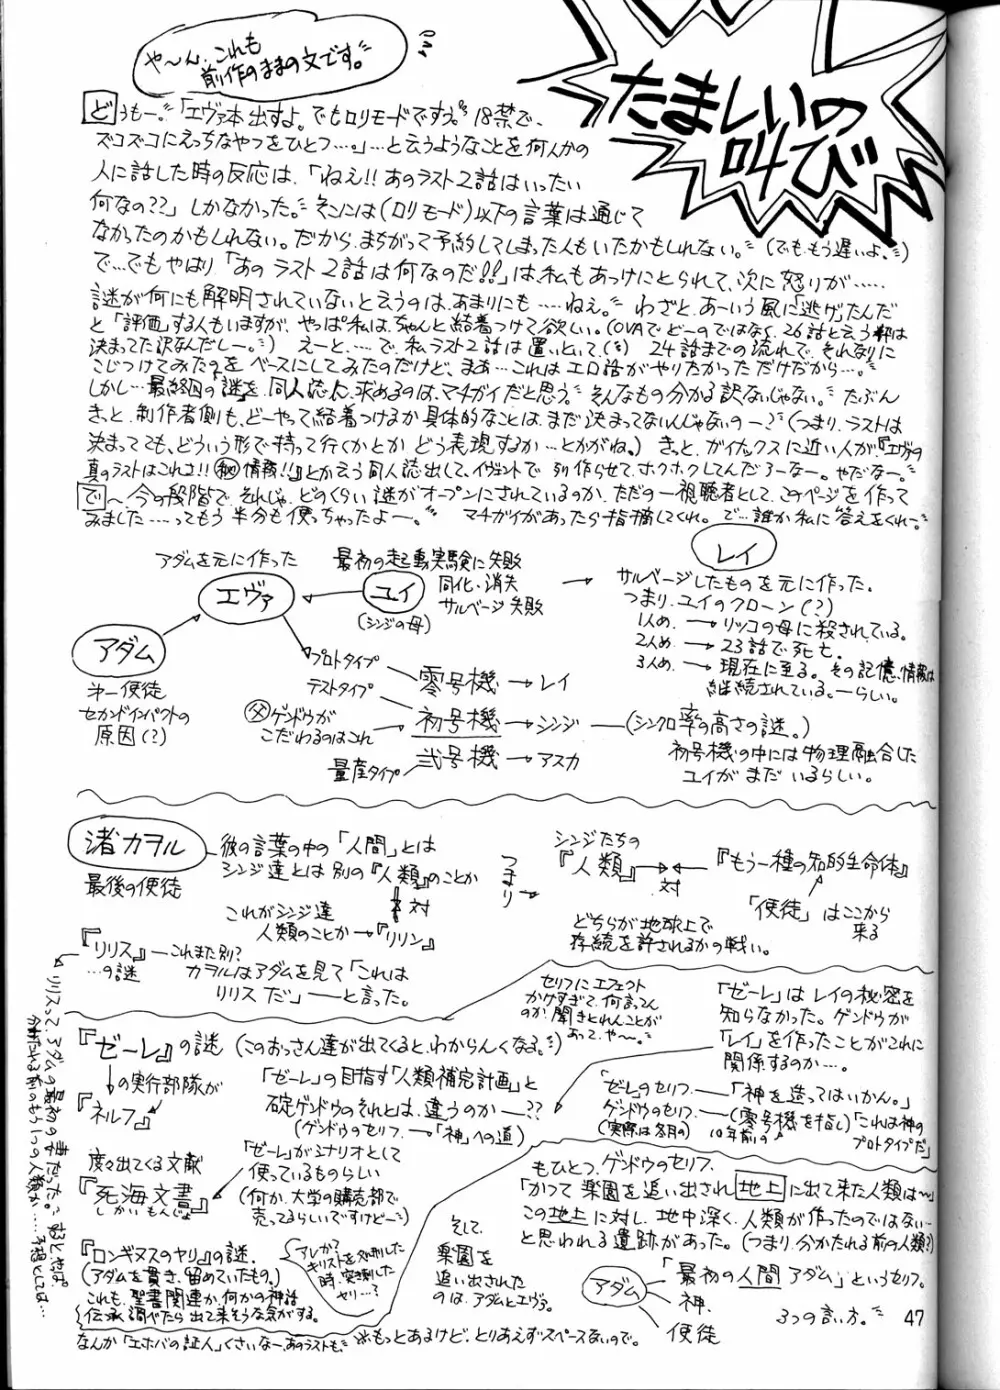 や〜ん、これも
前作のままの文です。
たましいの
叫び
どうもー。「エヴァ本出すよ。でもロリモードですう。18禁で、
ズコズコにえっちなやつをひとつ…。」…と云うようなことを何人かの
人に話した時の反応は、「ねえ!!あのラスト2話はいったい
何なの??」しかなかった。そこには(ロリモード)以下の言葉は通じて
なかったのかもしれない。だから、まちがって予約してしまった人もいたかもしれない。(でも、もう遅いよ。)
で…でもやはり「あのラスト2話は何なのだ!!」は、私もあっけにとられて、次に怒りが……
謎が何にも解明されていないと云うのは、あまりにも……ねえ。わざと、あーいう風に「逃げ」たんだ
と「評価」する人もいますが、やっぱ私は、ちゃんと結着つけて欲しい。(OVAでどーのではなく、26話と云う枠は
決まってた訳なんだしー。)えーと、…で、私、ラスト2話は置いといて、24話までの流れで、それなりに
こじつけてみたのをベースにしてみたのだけど、まあ…これはエロ話がやりたかっただけだから…。
しかし…最終回の謎を、同人誌に求めるのは、マチガイだと思う。そんなもの分かる訳ないじゃない。たぶん
きっと、制作者側も、どーやって結着つけるか具体的なことは、まだ決まってないんじゃないのー?(つまり、ラストは
決まってても、どういう形で持って行くかとか、どう表現するか…とかがね。)きっと、ガイナックスに近い人が『エヴァの
真のラストはこれさ!!㊙情報!!』とか云う同人誌出して、イヴェントで列作らせて、ホクホクしてんだろーなー。やだなー。
で〜今の段階で、それじゃ、どのくらい謎がオープンにされているのか、ただの一視聴者として、このページを作って
みました……ってもう半分も使っちゃったよー。マチガイがあったら指摘してくれ。で…誰か私に答えをくれー。
アダムを元に作った
エヴァ
最初の起動実験に失敗
ユイ
同化・消失
サルベージ失敗
(シンジの母)
レイ
サルベージしたものを元に作った。
つまり、ユイのクローン(?)
1人め、→リツコの母に殺されている。
2人め、→23話で死亡。
3人め、→現在に至る。その記憶、情報は
継続されている。―らしい。
アダム
第一使徒
セカンドインパクトの
原因(?)
プロトタイプ 零号機→レイ
テストタイプ
父ゲンドウが
こだわるのはこれ
初号機→シンジ―(シンクロ率の高さの謎。)
量産タイプ 弐号機→アスカ
初号機の中には物理融合した
ユイがまだいるらしい。
渚カヲル
最後の使徒
彼の言葉の中の「人間」とは
シンジ達とは別の『人類』のことか
対
これがシンジ達
人類のことか→『リリン』
つまり
シンジたちの
『人類』
対
『もう一種の知的生命体』
「使徒」はここから
来る
どちらが地球上で
存続を許されるかの戦い。
『リリス』―これまた別?
…の謎
カヲルはアダムを見て「これは
リリスだ」――と言った。
リリスって、アダムの最初の妻だった。あと、さっぱ
分かたれる前のもう1つの人類か……予想としては…
『ゼーレ』の謎(このおっさん達が出てくると、わからんくなる。)
の実行部隊が
『ネルフ』
セリフにエフェクト
かけすぎで、何言ってん
のか聞きとれんことが
あって、や〜。
「ゼーレ」はレイの秘密を
知らなかった。ゲンドウが
「レイ」を作ったことがこれに
関係するのか…。
「ゼーレ」の目指す「人類補完計画」と
碇ゲンドウのそれとは、違うのか―??
(ゲンドウのセリフ、→「神」への道)
「ゼーレ」のセリフ、――「神を造ってはいかん。」
ゲンドウのセリフ、―(零号機を指し)「これは神の
(実際は冬月の) 10年前の プロトタイプだ」
度々出てくる文献
『死海文書』
しかいもんじょ
「ゼーレ」がシナリオとして
使っているものらしい
(何か、大学の購売部で
売ってるらしいですけどー)
『ロンギヌスのヤリ』の謎、
(アダムを貫き、留めていたもの。)
これも、聖書関連か、何かの神話
伝承調べたら出て来そうな気がする。
アレか?
キリストを処刑した
時、突き刺した
ヤリ…?
そして、
楽園を
追い出された
のは、アダムとエヴァ。
もひとつ、ゲンドウのセリフ、
「かつて楽園を追い出され地上に出て来た人類は〜」
この地上に対し、地中深く、人類が作ったのではない…
と思われる遺跡があった。(つまり、分かたれる前の人類?)
アダム
「最初の人間アダム」というセリフ。
神、
使徒
3つの言い方。
なんか「エホバの証人」くさいなー、あのラストも、
※もっとあるけど、とりあえずスペースないので。
47